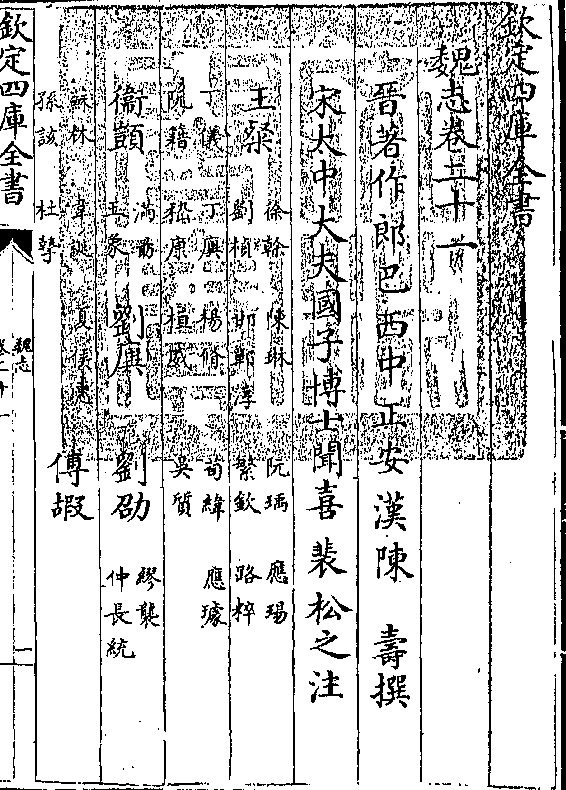 欽定四庫全書
魏志卷二十一
晉著作郎巴西中正安漢陳　壽撰
宋太中大夫國子博士聞喜裴松之注
王粲
徐幹　陳琳　阮瑀　應瑒
劉楨　邯鄲淳　繁欽　路粹
丁儀　丁廙　楊脩　荀緯　應璩
阮籍　嵇康　桓威　吳質
衞顗
潘勗
王象
劉廙　劉劭
繆襲
仲長統
蘇林　韋誕　夏侯惠
孫該　杜摯
傅嘏
欽定四庫全書
魏志
卷二十一
一